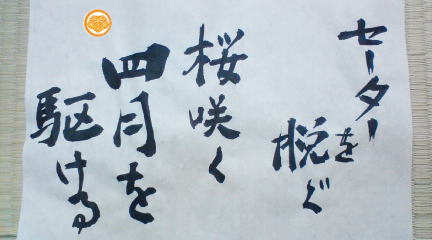 セーターを
脱ぐ
桜咲く
四月を
駆ける